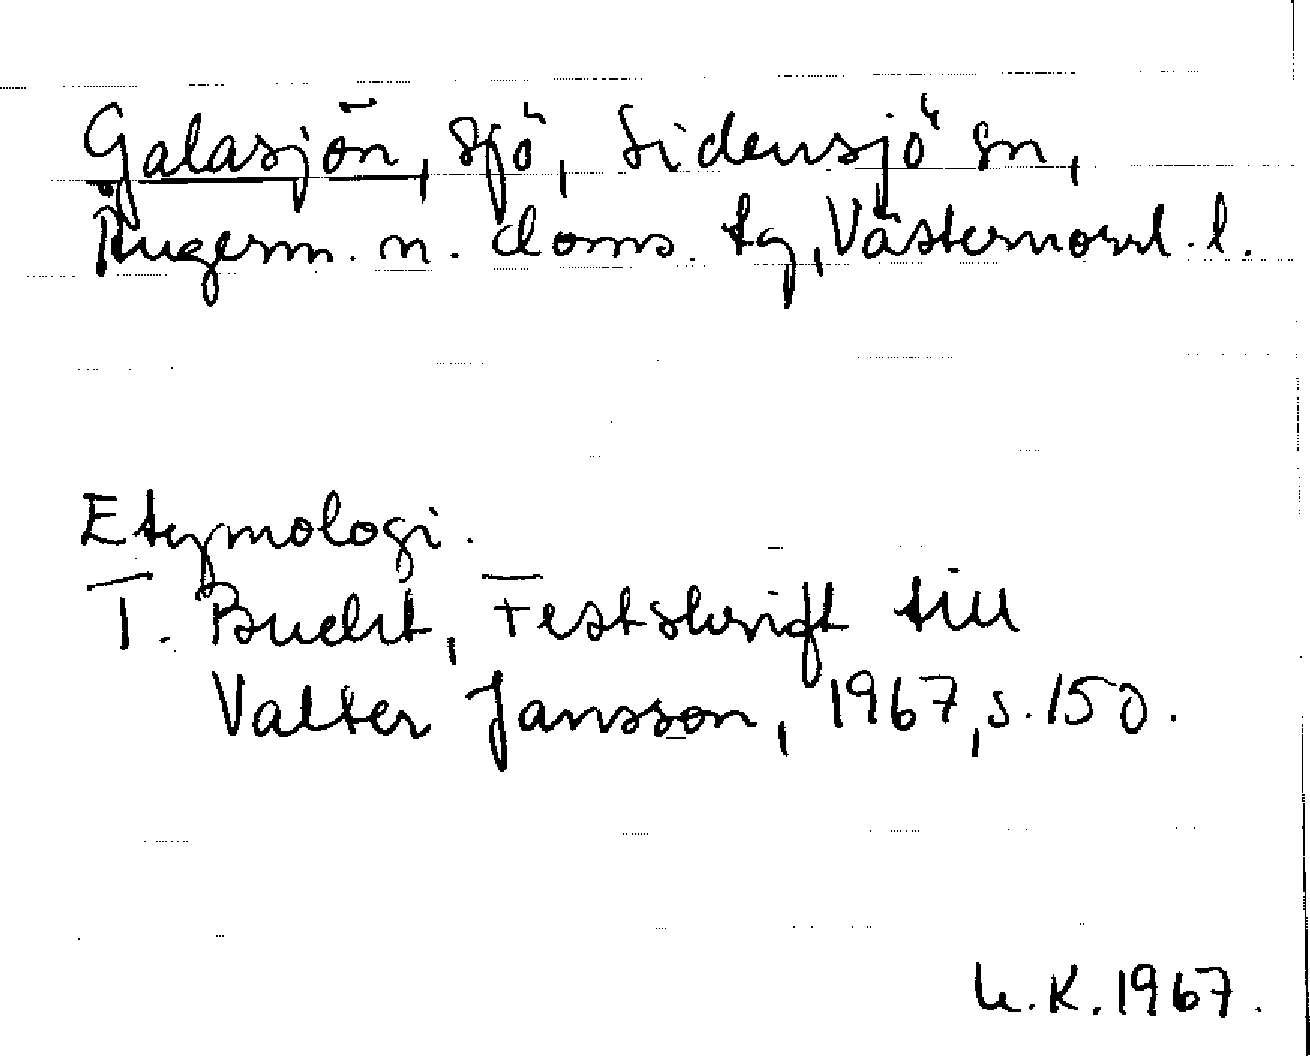 Galasjön, sjö, Sidensjö sn,
Ångerm. n. doms. tg, Västernorrl. l.
Etymologi.
T. Bucht, Festskrift till
Valter Jansson, 1967, s. 150.
U.K. 1967.